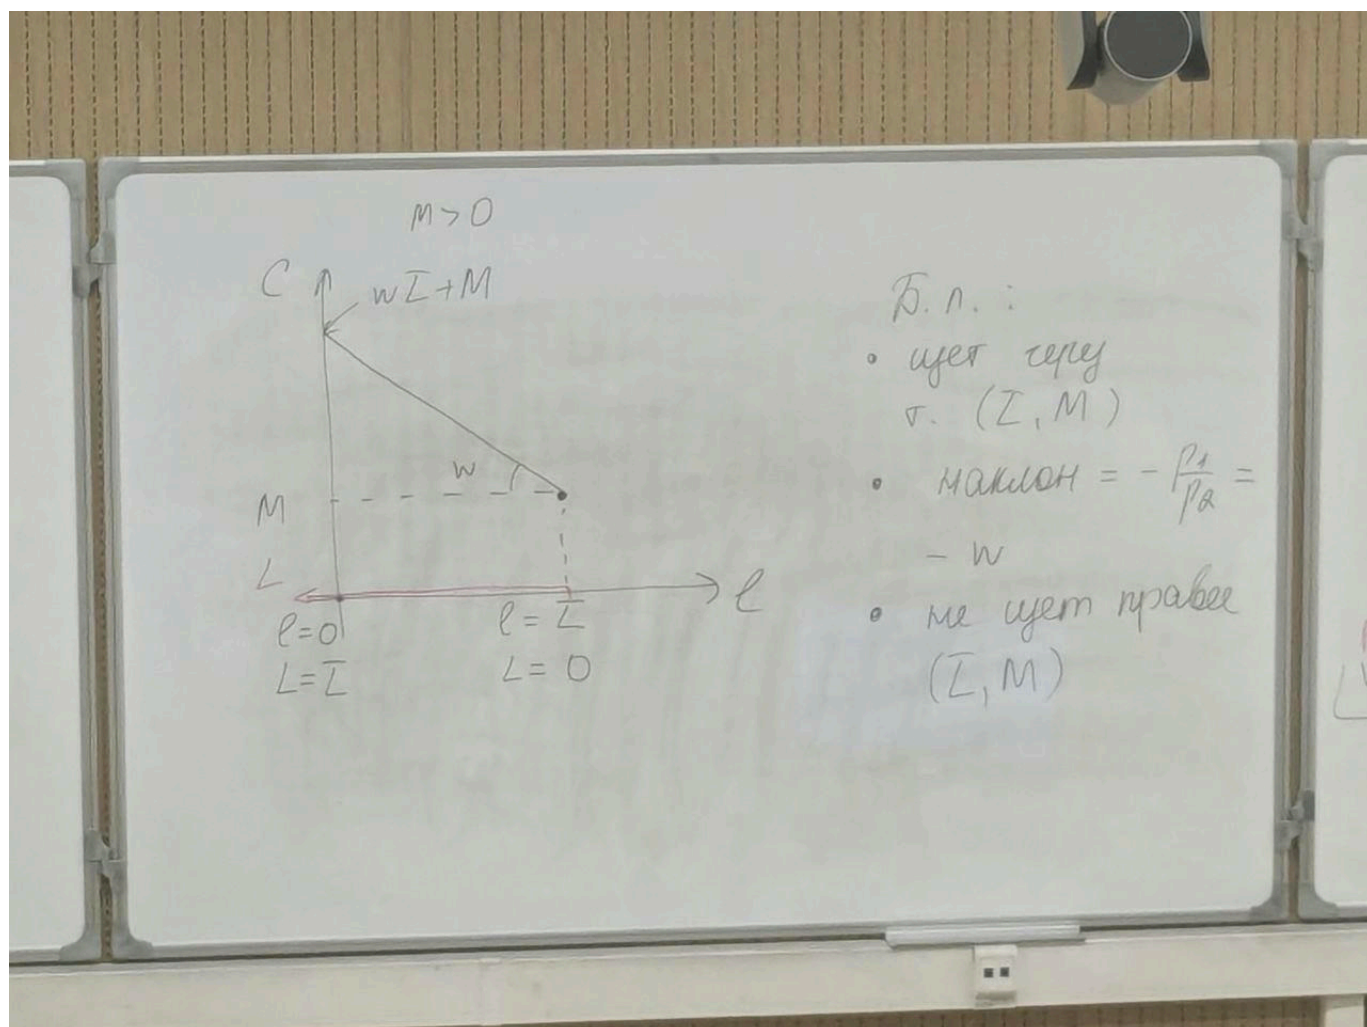 M > 0
C
wL̄+M
w
M
L
ℓ
ℓ=0
ℓ = L̄
L=L̄
L= 0
Б.л. :
• идет через
т. (L̄, M)
• наклон = - p₁/p₂ =
- w
• не идет правее
(L̄, M)